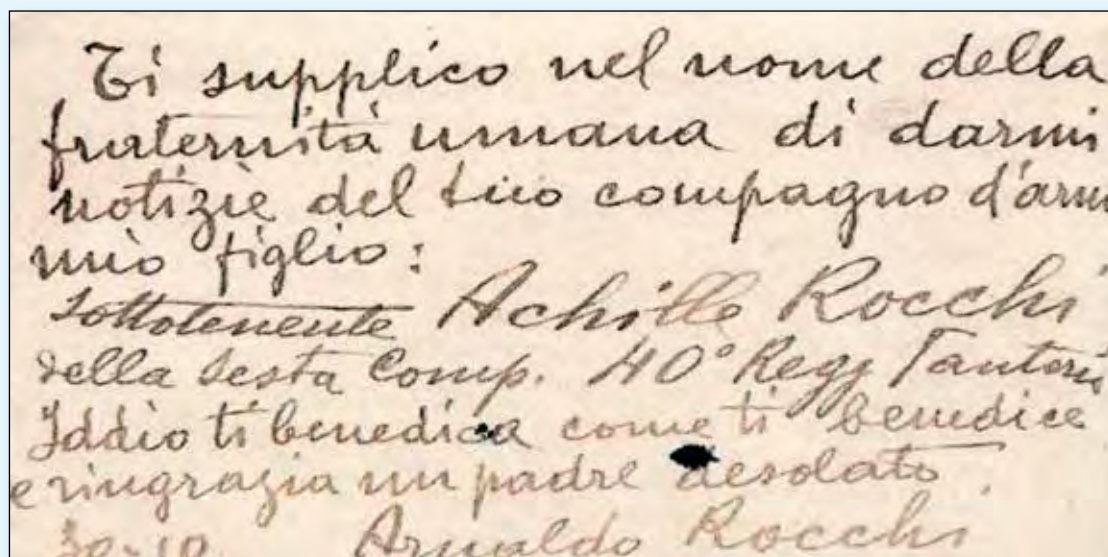 Ti supplico nel nome della
fraternità umana di darmi
notizie del tuo compagno d'arm
mio figlio:
Sottotenente Achille Rocchi
della Sesta Comp. 40° Regg Fanteri
Iddio ti benedica come ti benedice
e ringrazia un padre desolato.
30-10 Arnaldo Rocchi